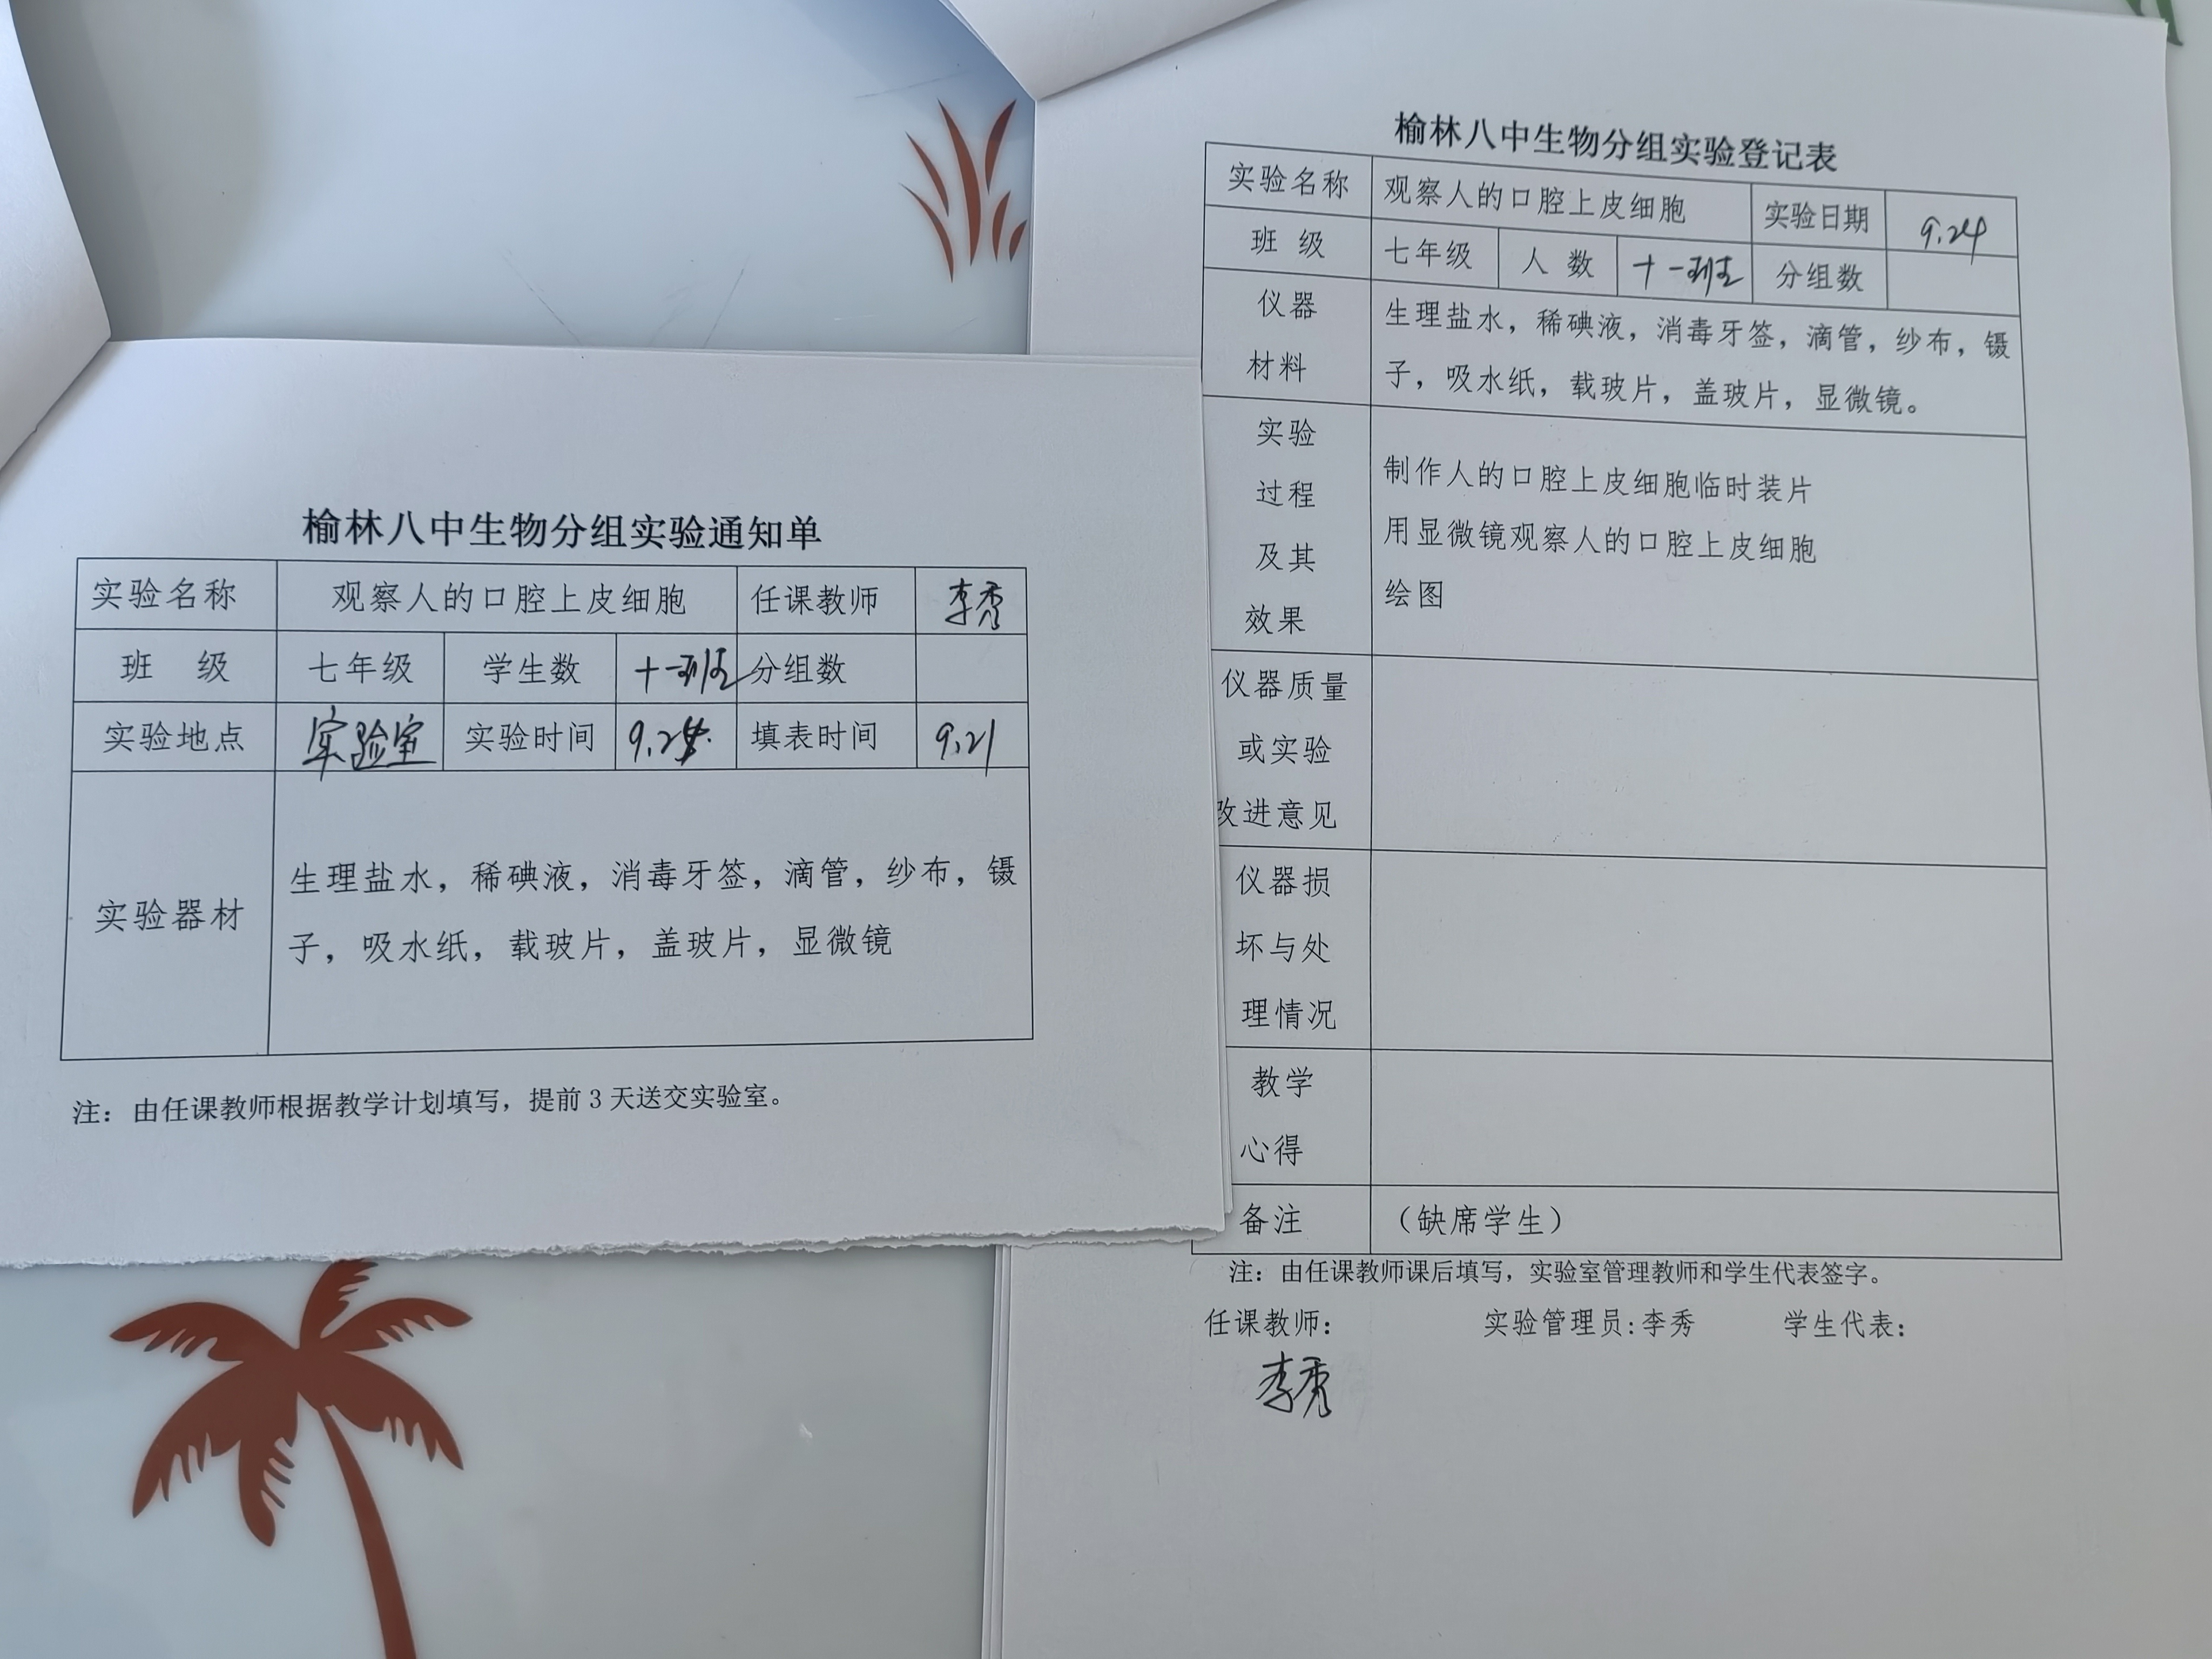 榆林八中生物分组实验通知单
实验名称 观察人的口腔上皮细胞 任课教师 李秀
班 级 七年级 学生数 十一班 分组数
实验地点 实验室 实验时间 9.24. 填表时间 9.21
实验器材
生理盐水，稀碘液，消毒牙签，滴管，纱布，镊
子，吸水纸，载玻片，盖玻片，显微镜
注：由任课教师根据教学计划填写，提前 3 天送交实验室。
榆林八中生物分组实验登记表
实验名称 观察人的口腔上皮细胞 实验日期 9.24
班 级 七年级 人 数 十一班 分组数
仪器
材料
生理盐水，稀碘液，消毒牙签，滴管，纱布，镊
子，吸水纸，载玻片，盖玻片，显微镜。
实验
过程
及其
效果
制作人的口腔上皮细胞临时装片
用显微镜观察人的口腔上皮细胞
绘图
仪器质量
或实验
改进意见
仪器损
坏与处
理情况
教学
心得
备注 （缺席学生）
注：由任课教师课后填写，实验室管理教师和学生代表签字。
任课教师： 实验管理员:李秀 学生代表：
李秀